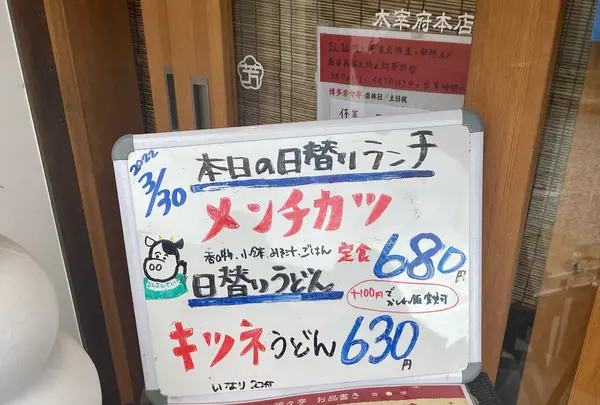 太宰府本店
博多芳々亭 店休日／土日祝
芳
2022
3/30
本日の日替りランチ
メンチカツ
香の物、小鉢、みそ汁、ごはん 定食 680円
日替りうどん。
+100円で
かしわ飯変更可
キツネうどん 630円
いなり2コ付
々亭 お品書き